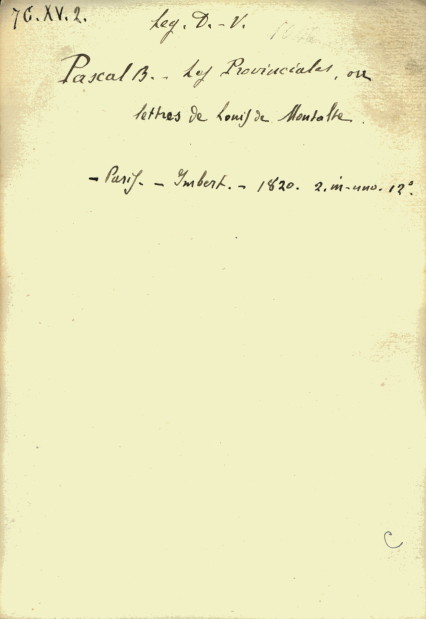 7C.XV.2.
Leg. D.-V.
Pascal B. - Les Provinciales, ou
lettres de Louis de Montalte.
- Paris. - Imbert. - 1820. 2. in-uno. 12°.
C